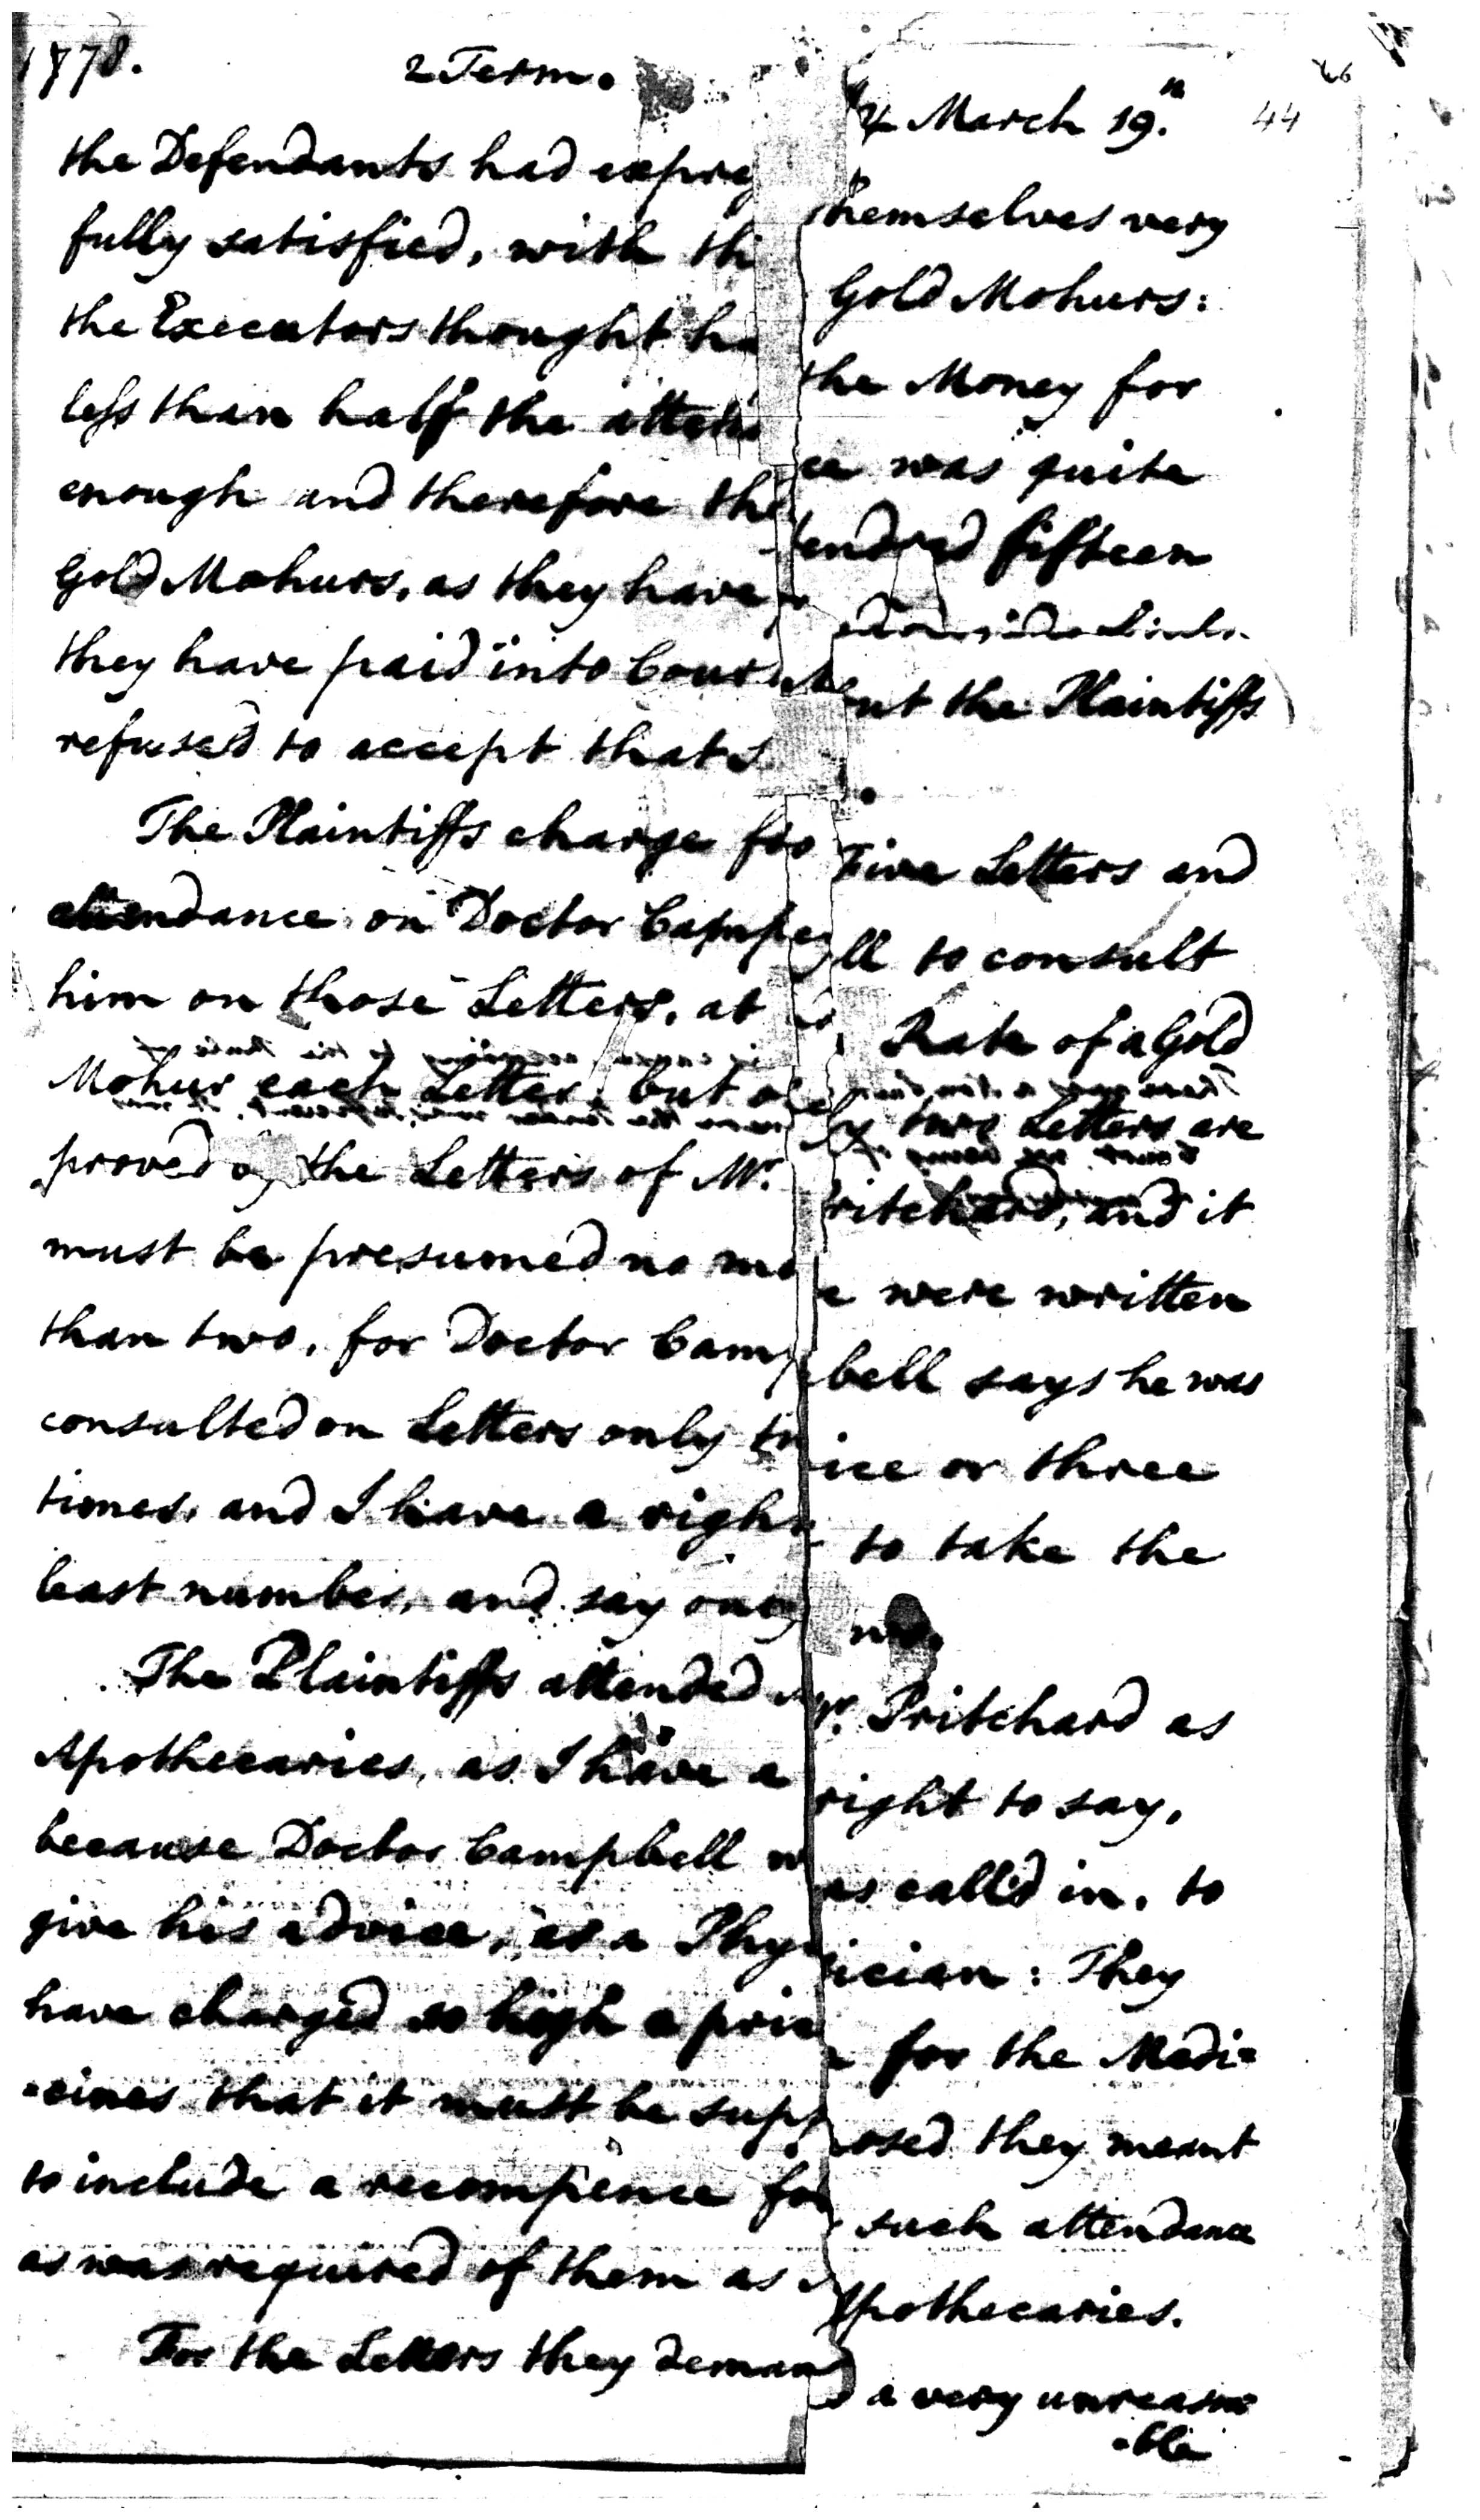 1778. 2 Term. 4 March 19.th 44
the Defendants had expre themselves very
fully satisfied, with thi Gold Mohurs:
the Executors thought ha the Money for
less than half the atten ce was quite
enough and therefore they tendred fifteen
Gold Mohurs, as they have
they have paid into Cour but the Plaintiffs
refused to accept that S
The Plaintiffs charge for Five Letters and
attendance on Doctor Campbell to consult
him on those Letters, at Rate of a Gold
Mohur each Letter, but only two Letters are
proved by the Letters of Mr. Pritchard, and it
must be presumed no more were written
than two, for Doctor Campbell says he was
consulted on Letters only twice or three
times, and I have a right to take the
least number, and say only two.
The Plaintiffs attended Mr. Pritchard as
Apothecaries, as I have a right to say,
because Doctor Campbell was call'd in, to
give his advice, as a Physician: They
have charged so high a price for the Medi=
=cines that it must be supposed they meant
to include a recompence for such attendance
as was required of them as Apothecaries.
For the Letters they demand a very unreason
=ble